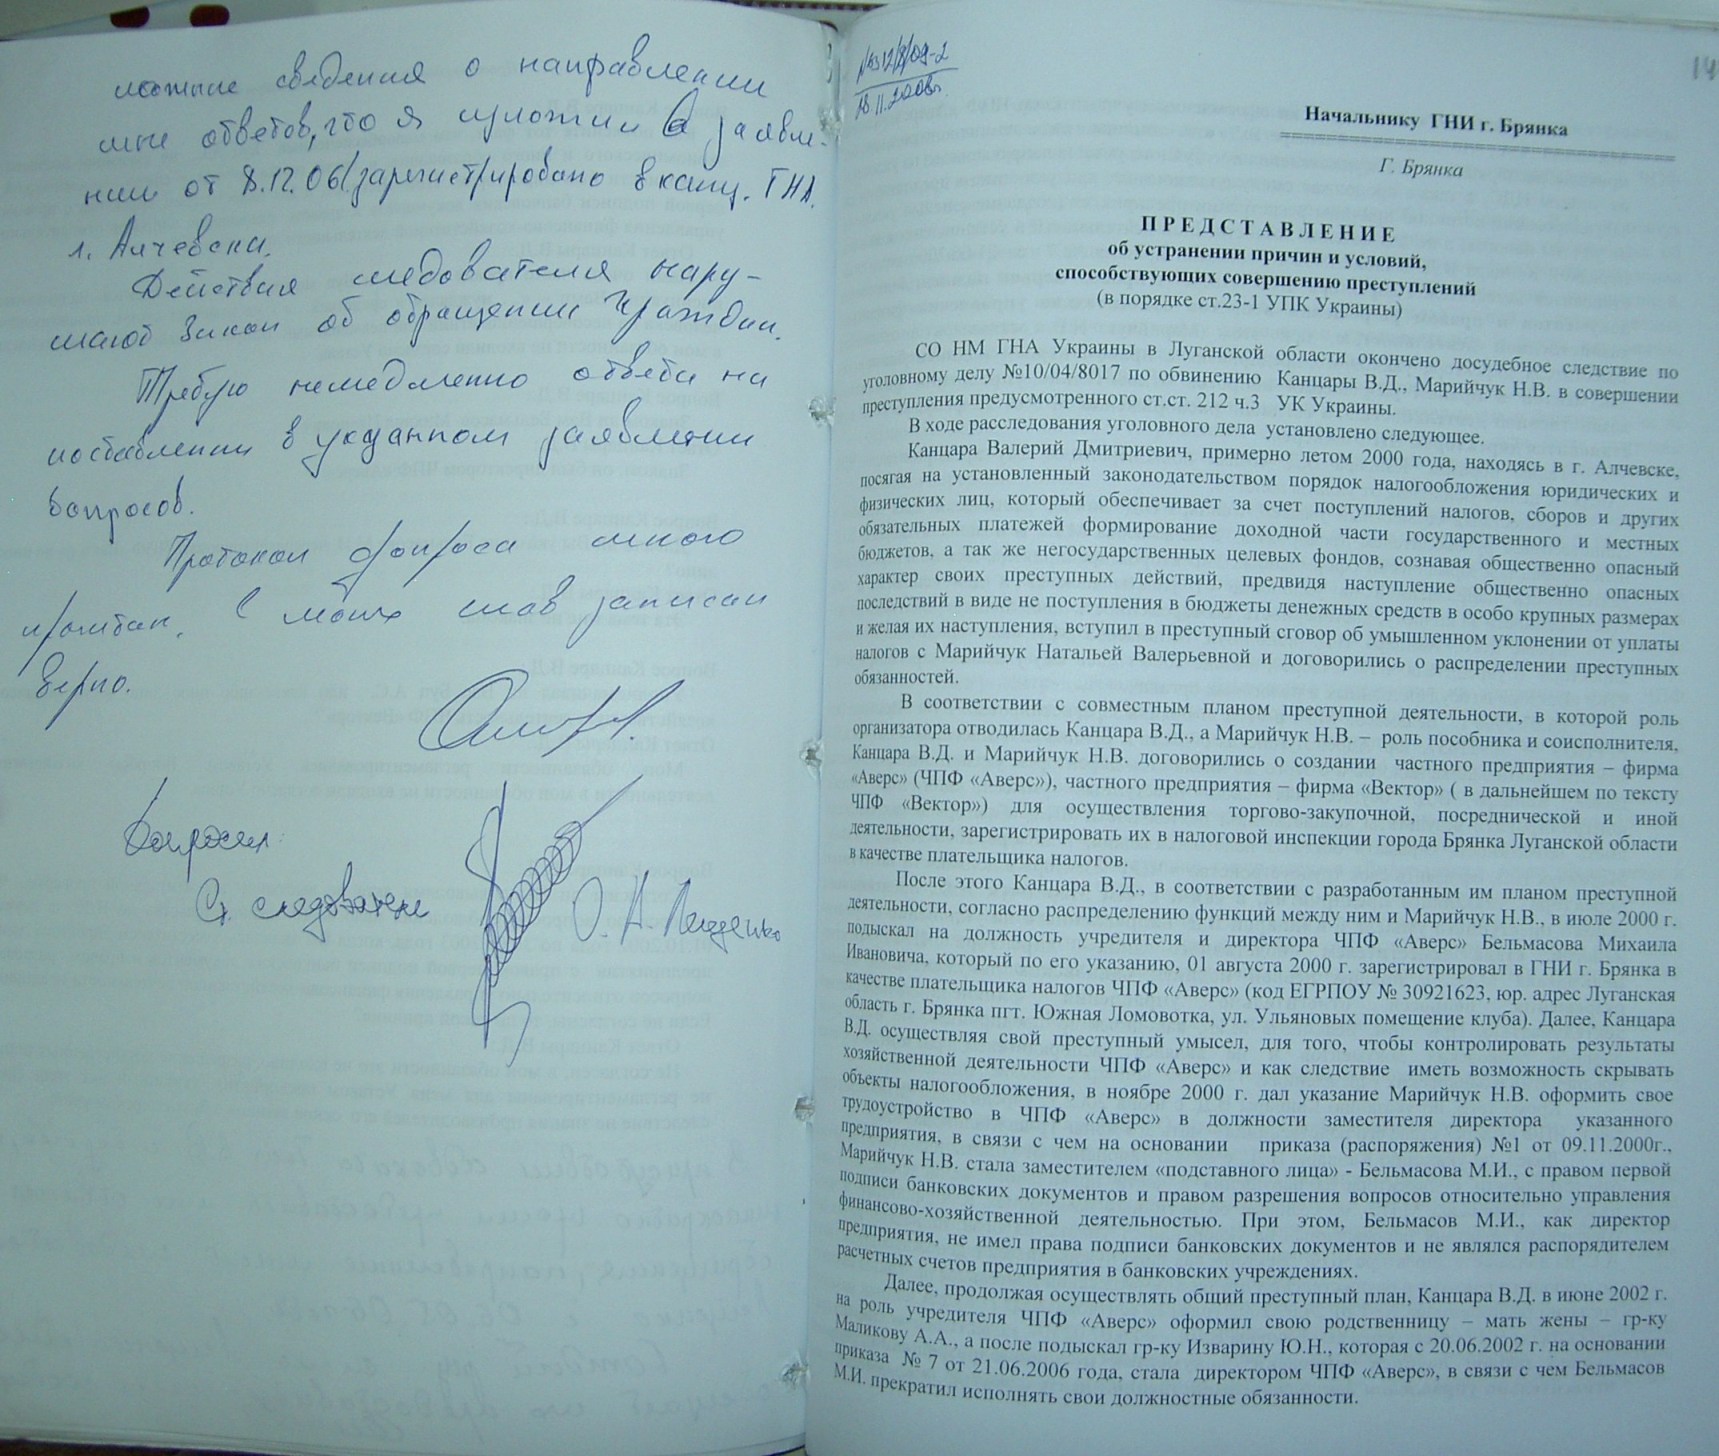 ложные сведения о направлении
мне ответов, что я изложил в заявле-
нии от 8.12.06 (зарегистрировано в канц. ГНА
г. Алчевска.
Действия следователя нару-
шают Закон об обращении граждан.
Требую немедленно ответа на
поставленные в указанном заявлении
вопросов.
Протокол допроса мною
прочитан, с моих слов записан
верно.
Допросил:
Ст. следователь О. А.
18.11.2008г.
14
Начальнику ГНИ г. Брянка
Г. Брянка
П Р Е Д С Т А В Л Е Н И Е
об устранении причин и условий,
способствующих совершению преступлений
(в порядке ст.23-1 УПК Украины)
СО НМ ГНА Украины в Луганской области окончено досудебное следствие по
уголовному делу №10/04/8017 по обвинению Канцары В.Д., Марийчук Н.В. в совершении
преступления предусмотренного ст.ст. 212 ч.3 УК Украины.
В ходе расследования уголовного дела установлено следующее.
Канцара Валерий Дмитриевич, примерно летом 2000 года, находясь в г. Алчевске,
посягая на установленный законодательством порядок налогообложения юридических и
физических лиц, который обеспечивает за счет поступлений налогов, сборов и других
обязательных платежей формирование доходной части государственного и местных
бюджетов, а так же негосударственных целевых фондов, сознавая общественно опасный
характер своих преступных действий, предвидя наступление общественно опасных
последствий в виде не поступления в бюджеты денежных средств в особо крупных размерах
и желая их наступления, вступил в преступный сговор об умышленном уклонении от уплаты
налогов с Марийчук Натальей Валерьевной и договорились о распределении преступных
обязанностей.
В соответствии с совместным планом преступной деятельности, в которой роль
организатора отводилась Канцара В.Д., а Марийчук Н.В. – роль пособника и соисполнителя,
Канцара В.Д. и Марийчук Н.В. договорились о создании частного предприятия – фирма
«Аверс» (ЧПФ «Аверс»), частного предприятия – фирма «Вектор» ( в дальнейшем по тексту
ЧПФ «Вектор») для осуществления торгово-закупочной, посреднической и иной
деятельности, зарегистрировать их в налоговой инспекции города Брянка Луганской области
в качестве плательщика налогов.
После этого Канцара В.Д., в соответствии с разработанным им планом преступной
деятельности, согласно распределению функций между ним и Марийчук Н.В., в июле 2000 г.
подыскал на должность учредителя и директора ЧПФ «Аверс» Бельмасова Михаила
Ивановича, который по его указанию, 01 августа 2000 г. зарегистрировал в ГНИ г. Брянка в
качестве плательщика налогов ЧПФ «Аверс» (код ЕГРПОУ № 30921623, юр. адрес Луганская
область г. Брянка пгт. Южная Ломовотка, ул. Ульяновых помещение клуба). Далее, Канцара
В.Д. осуществляя свой преступный умысел, для того, чтобы контролировать результаты
хозяйственной деятельности ЧПФ «Аверс» и как следствие иметь возможность скрывать
объекты налогообложения, в ноябре 2000 г. дал указание Марийчук Н.В. оформить свое
трудоустройство в ЧПФ «Аверс» в должности заместителя директора указанного
предприятия, в связи с чем на основании приказа (распоряжения) №1 от 09.11.2000г.,
Марийчук Н.В. стала заместителем «подставного лица» - Бельмасова М.И., с правом первой
подписи банковских документов и правом разрешения вопросов относительно управления
финансово-хозяйственной деятельностью. При этом, Бельмасов М.И., как директор
предприятия, не имел права подписи банковских документов и не являлся распорядителем
расчетных счетов предприятия в банковских учреждениях.
Далее, продолжая осуществлять общий преступный план, Канцара В.Д. в июне 2002 г.
на роль учредителя ЧПФ «Аверс» оформил свою родственницу – мать жены – гр-ку
Маликову А.А., а после подыскал гр-ку Изварину Ю.Н., которая с 20.06.2002 г. на основании
приказа № 7 от 21.06.2006 года, стала директором ЧПФ «Аверс», в связи с чем Бельмасов
М.И. прекратил исполнять свои должностные обязанности.